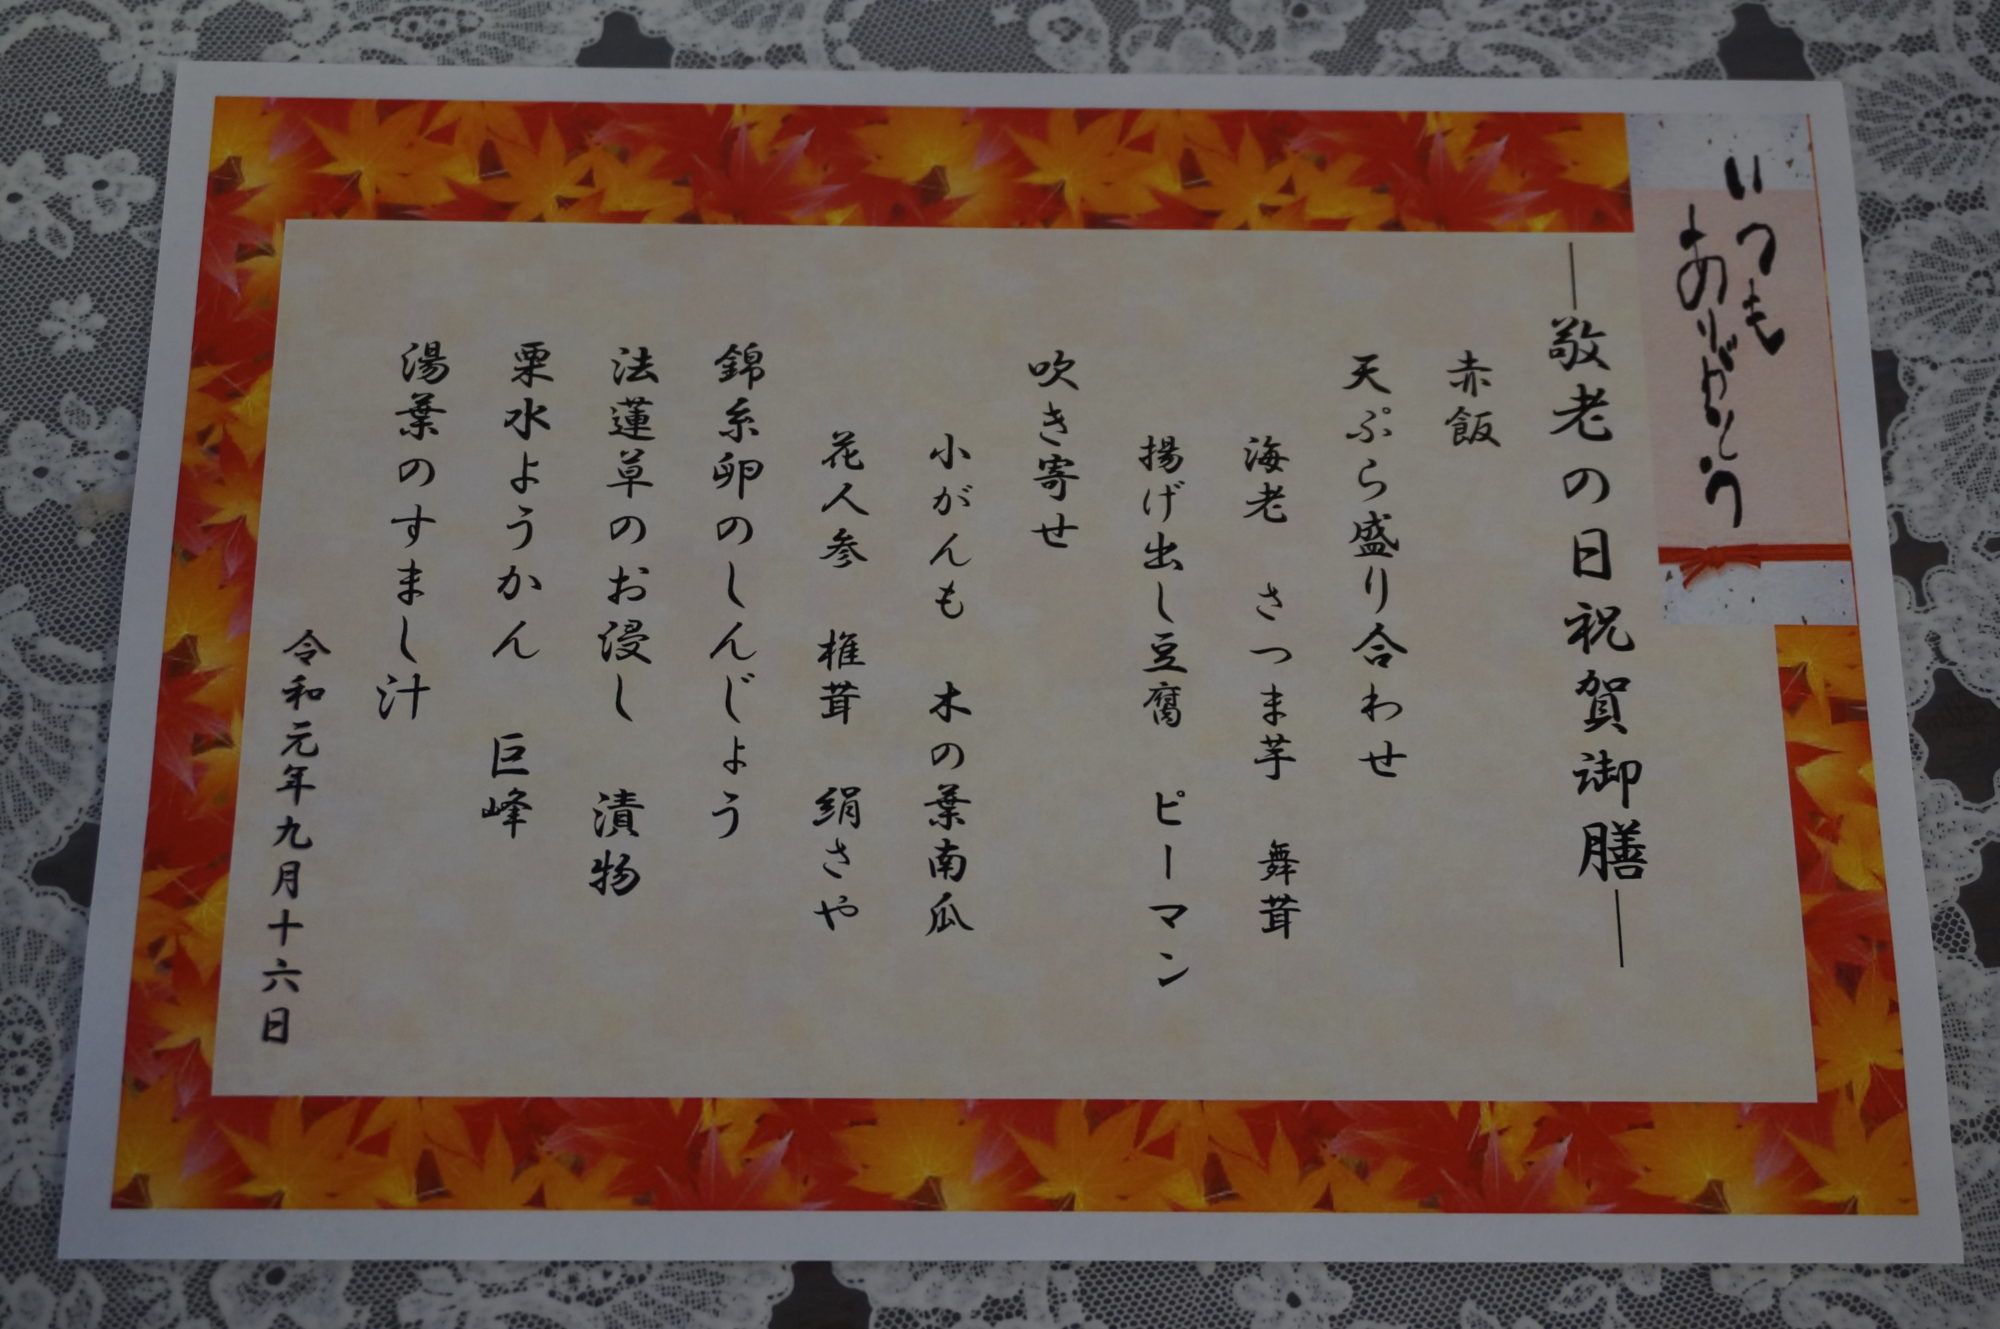 いつも
ありがとう
―敬老の日祝賀御膳―
赤飯
天ぷら盛り合わせ
海老　さつま芋　舞茸
揚げ出し豆腐　ピーマン
吹き寄せ
小がんも　木の葉南瓜
花人参　椎茸　絹さや
錦糸卵のしんじょう
法蓮草のお浸し　漬物
栗水ようかん　巨峰
湯葉のすまし汁
令和元年九月十六日